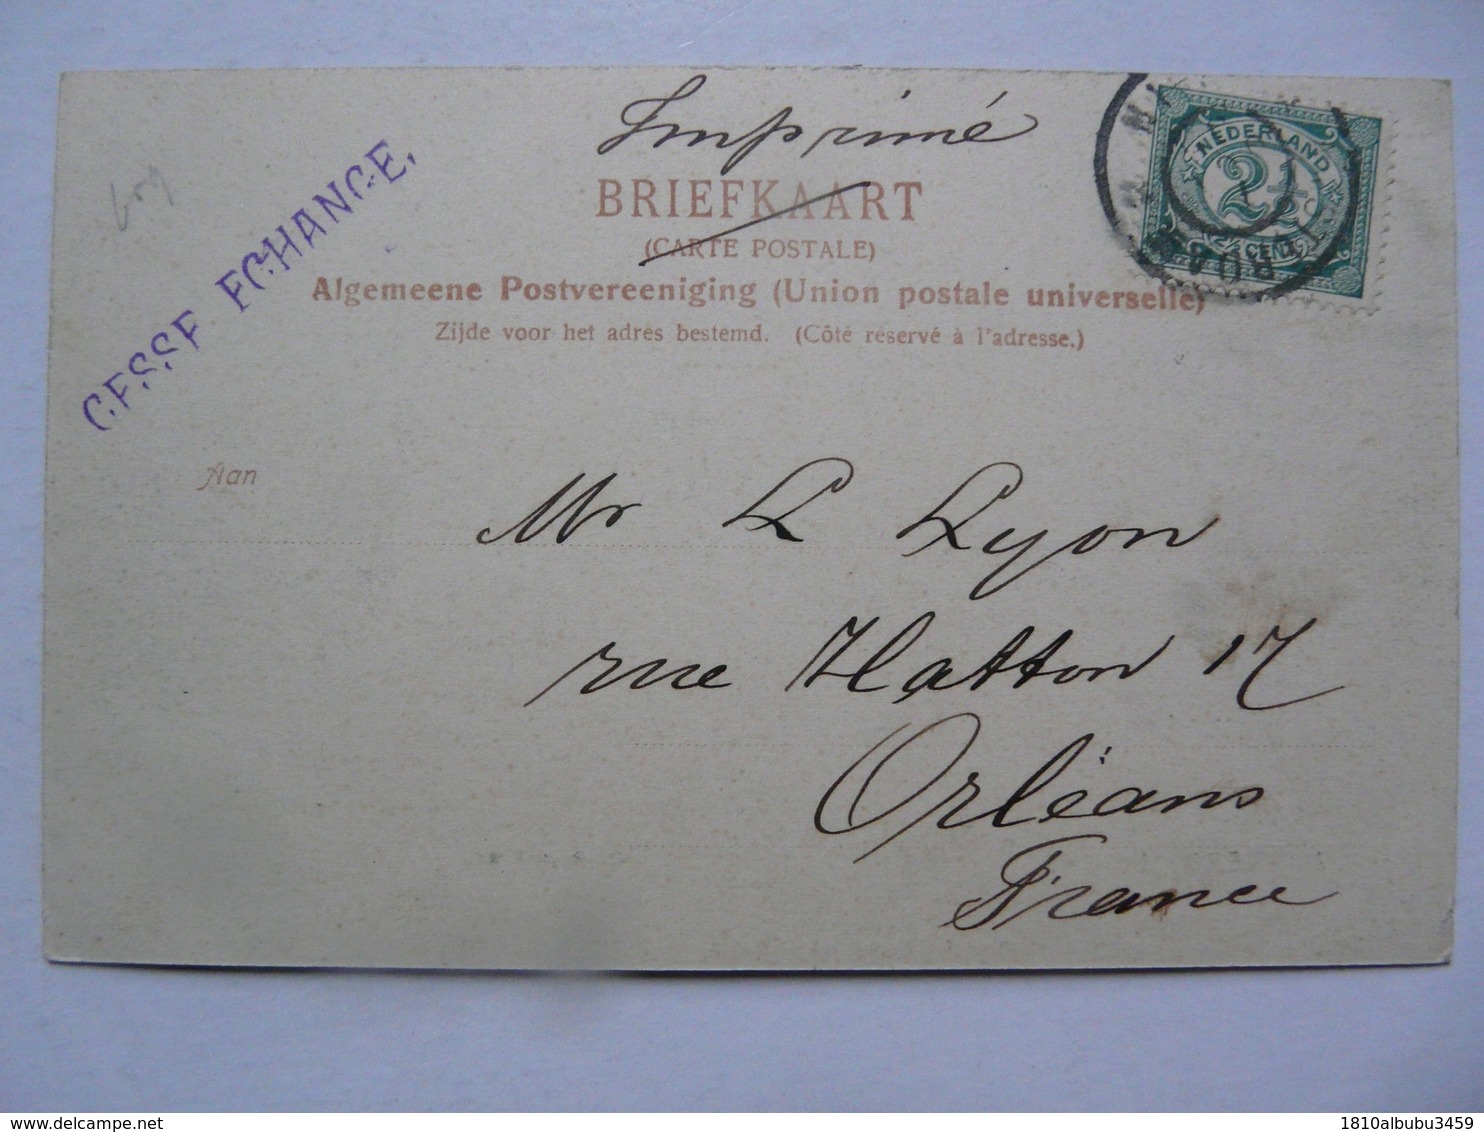 Imprimé
BRIEFKAART
(CARTE POSTALE)
Algemeene Postvereeniging (Union postale universelle)
Zijde voor het adres bestemd. (Côté réservé à l'adresse.)
CESSE ECHANGE.
NEDERLAND
2½
2½ CENT
Aan
Mr L Lyon
rue Hatton 17
Orléans
France
1810albubu3459